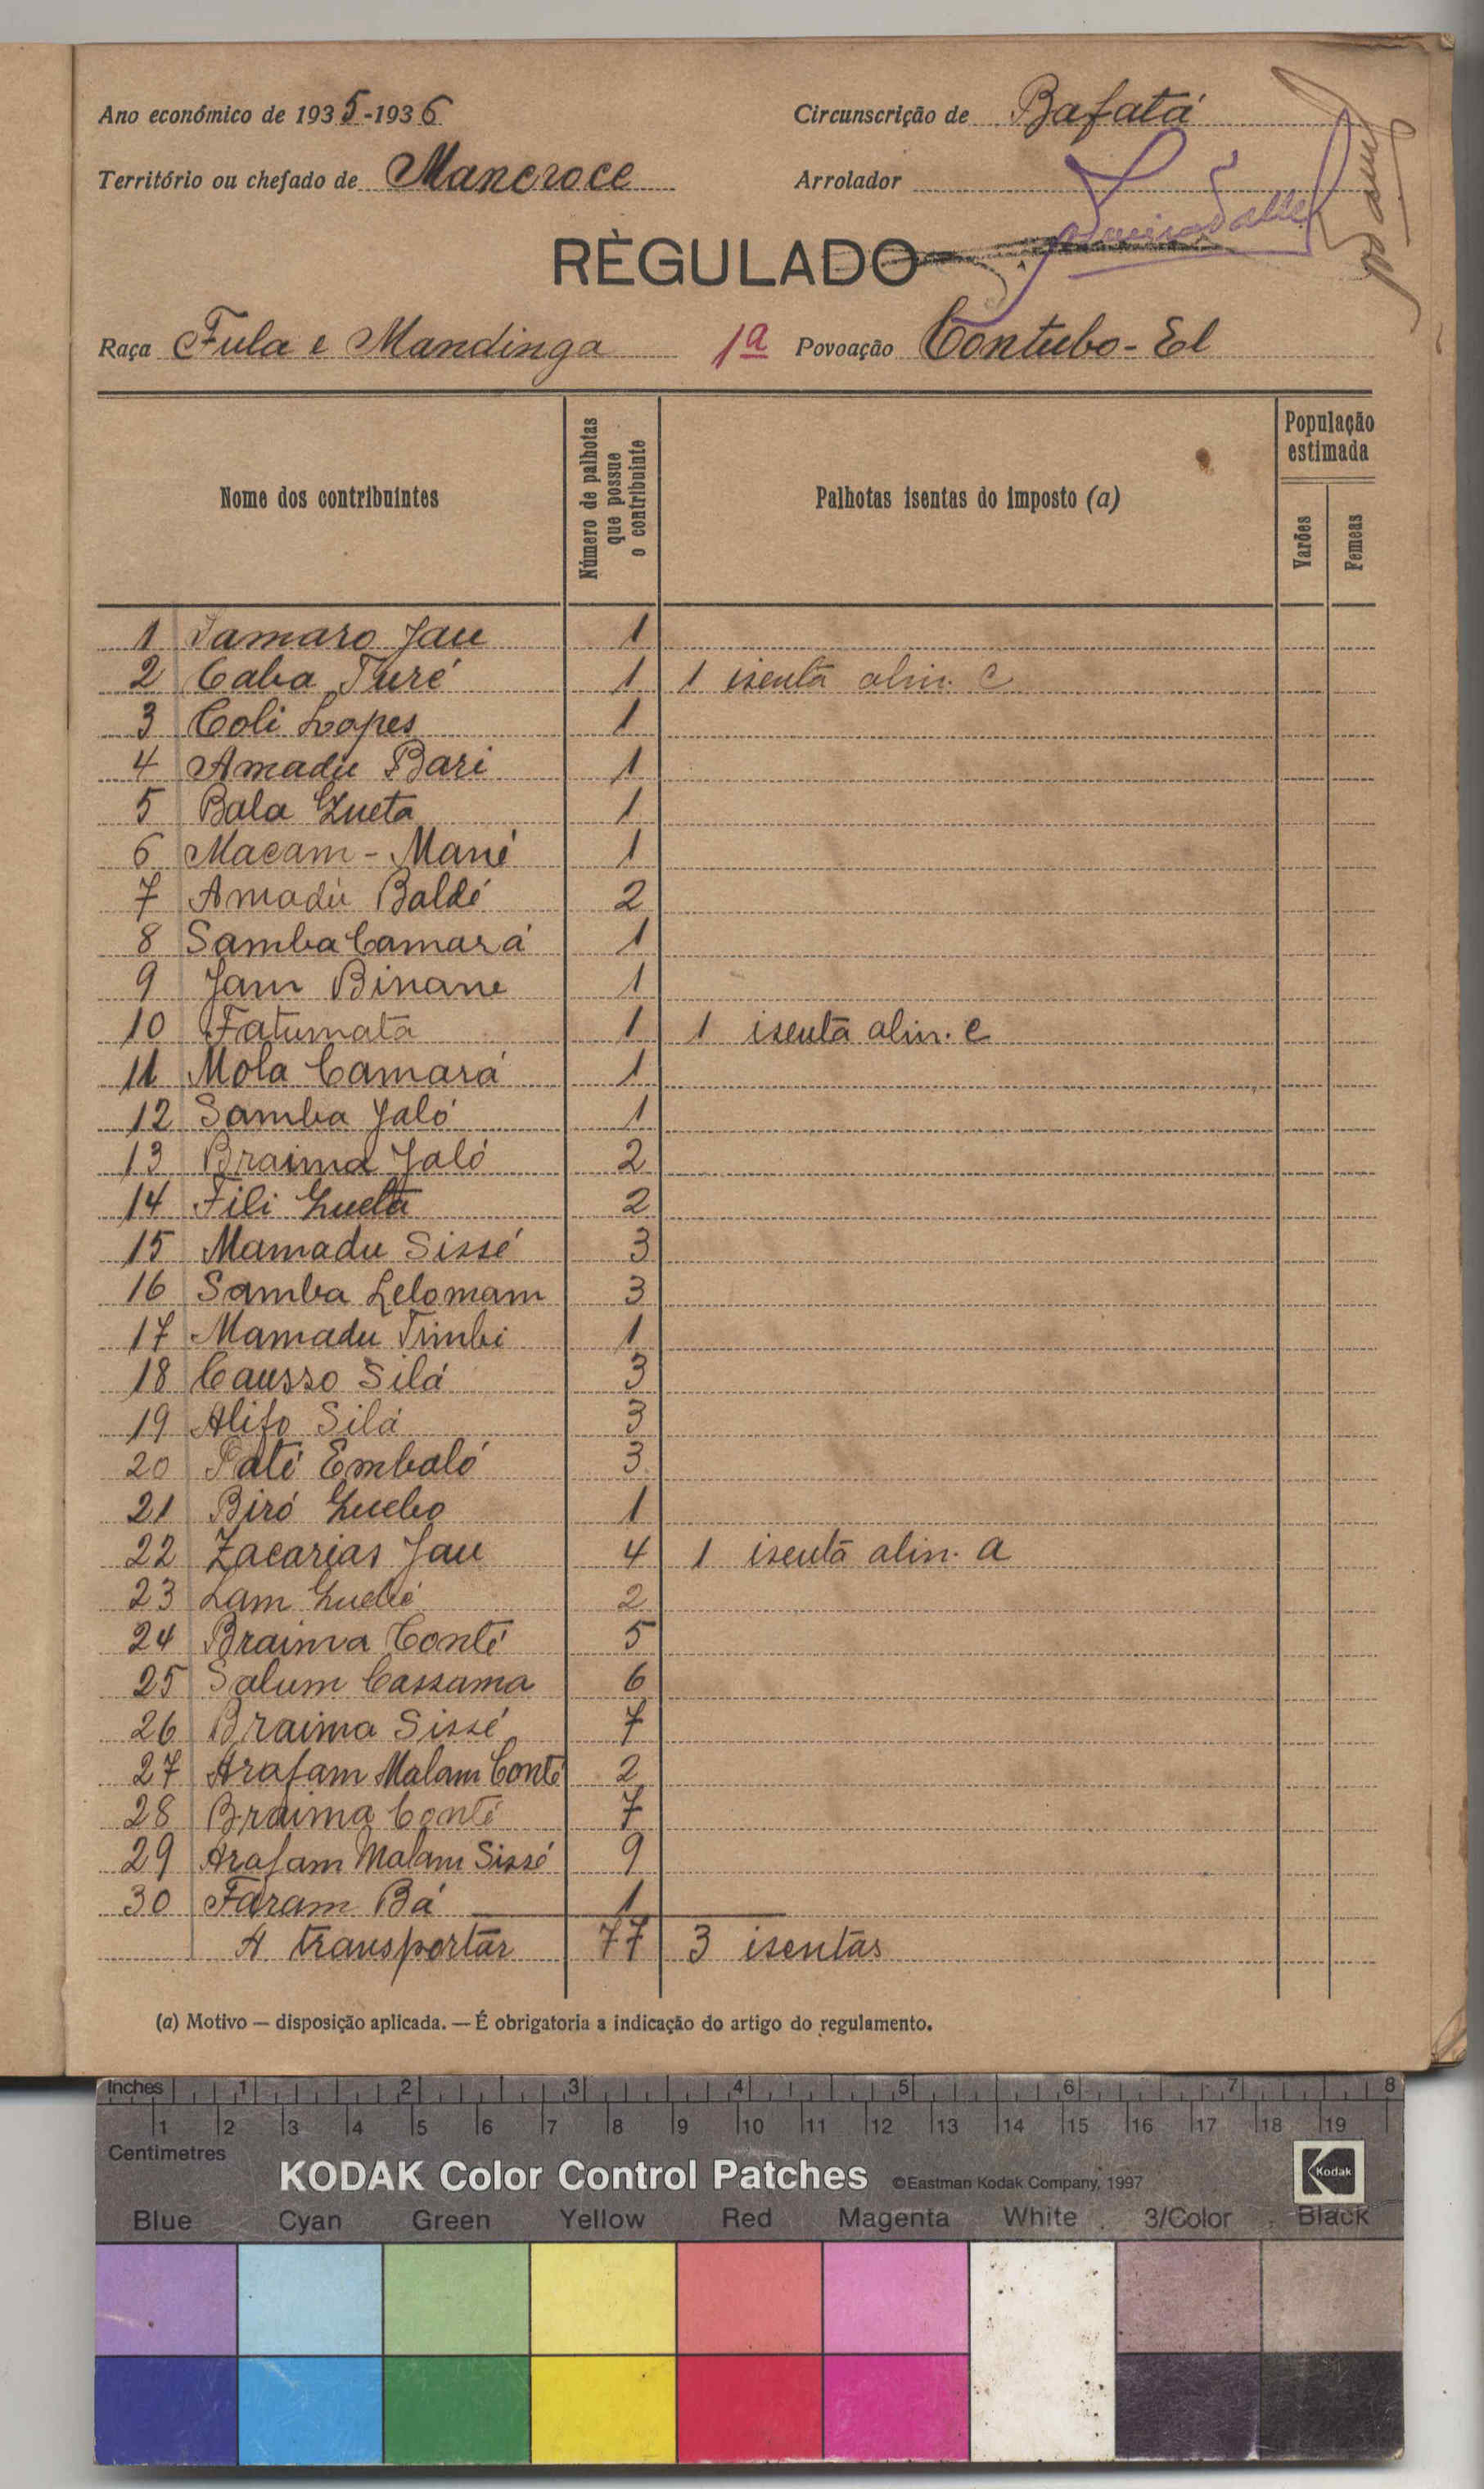 Ano económico de 1935-1936
Circunscrição de Bafatá
Território ou chefado de Mancroce
Arrolador
RÈGULADO
Raça Fula e Mandinga 1ª Povoação Contubo-El
Nome dos contribuintes
Número de palhotas que possue o contribuinte
Palhotas isentas do imposto (a)
População estimada
Varões
Femeas
1 Samaro Jau 1
2 Caba Turé 1 1 isenta alin. c
3 Coli Lopes 1
4 Amadu Bari 1
5 Bala Gueta 1
6 Macam-Mané 1
7 Amadú Baldé 2
8 Samba Camará 1
9 Jam Binane 1
10 Fatumata 1 1 isenta alin. c
11 Mola Camará 1
12 Samba Jaló 1
13 Braima Jaló 2
14 Fili Gueta 2
15 Mamadu Sissé 3
16 Samba Lelomam 3
17 Mamadu Timbi 1
18 Causso Silá 3
19 Alifo Silá 3
20 Paté Embaló 3
21 Biró Guebo 1
22 Zacarias Jau 4 1 isenta alin. a
23 Lam 2
24 Braima Conté 5
25 Salum Cassama 6
26 Braima Sissé 7
27 Arafam Malam Conté 2
28 Braima Conté 7
29 Arafam Malam Sissé 9
30 Faram Bá 1
A transportar 77 3 isentas
(a) Motivo — disposição aplicada. — É obrigatoria a indicação do artigo do regulamento.
Inches 1 2 3 4 5 6 7 8
1 2 3 4 5 6 7 8 9 10 11 12 13 14 15 16 17 18 19
Centimetres
KODAK Color Control Patches ©Eastman Kodak Company, 1997 Kodak
Blue Cyan Green Yellow Red Magenta White 3/Color Black